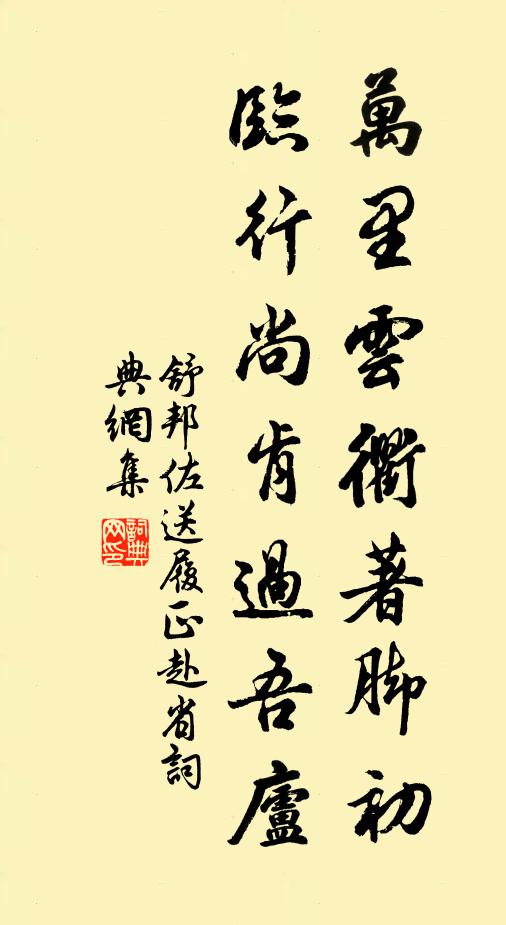 萬里雲衢著脚初
臨行尚肯過吾廬
舒邦佐送履正赴省詞
典網集
詞典網印